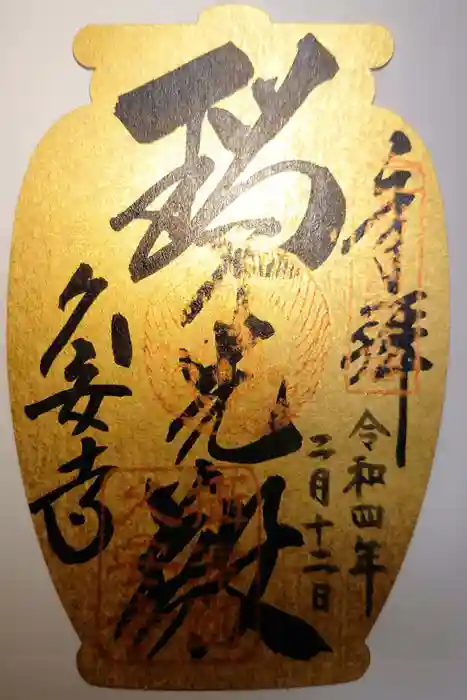 奉拝
令和四年
二月十二日
瑞光殿
久安寺